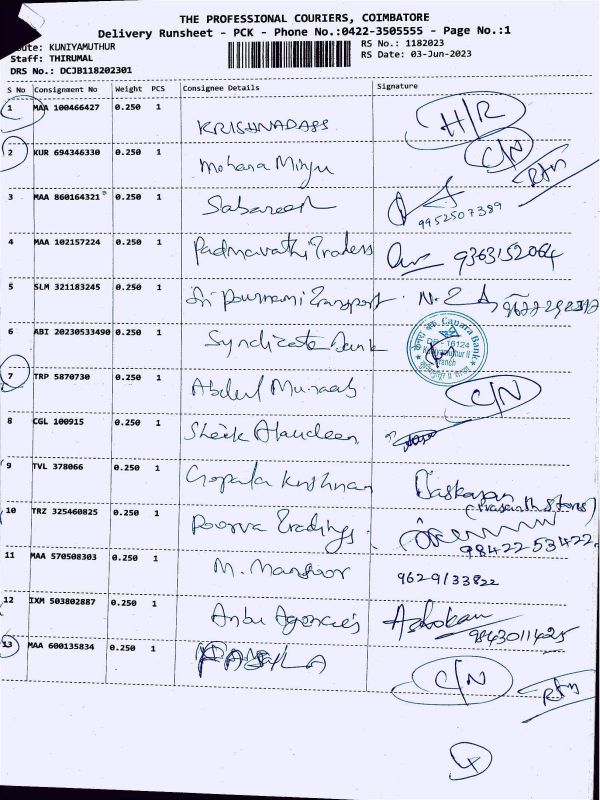 THE PROFESSIONAL COURIERS, COIMBATORE
Delivery Runsheet - PCK - Phone No.:0422-3505555 - Page No.:1
Route: KUNIYAMUTHUR
RS No.: 1182023
Staff: THIRUMAL
RS Date: 03-Jun-2023
DRS No.: DCJB118202301
S No Consignment No Weight PCS Consignee Details Signature
1 MAA 100466427 0.250 1 KRISHNADASS H/R
2 KUR 694346330 0.250 1 Mohana C/N Rtn
3 MAA 860164321 0.250 1 Sabareesh 9952507389
4 MAA 102157224 0.250 1 Padmavathi Traders 9363152064
5 SLM 321183245 0.250 1 Sri Pournami Transport
6 ABI 20230533490 0.250 1 Syndicate Bank Canara Bank
7 TRP 5870730 0.250 1 Abdul C/N
8 CGL 100915 0.250 1 Sheik Alaudeen
9 TVL 378066 0.250 1 Gopala Krishnan Baskaran
(Prasanth Stores)
10 TRZ 325460825 0.250 1 Poorva Tradings
98422 53422
11 MAA 570508303 0.250 1 M. Mansoor 9629133822
12 IXM 503802887 0.250 1 Anbu Agencies Ashokan
9843011425
13 MAA 600135834 0.250 1 FASILA C/N Rtn
4